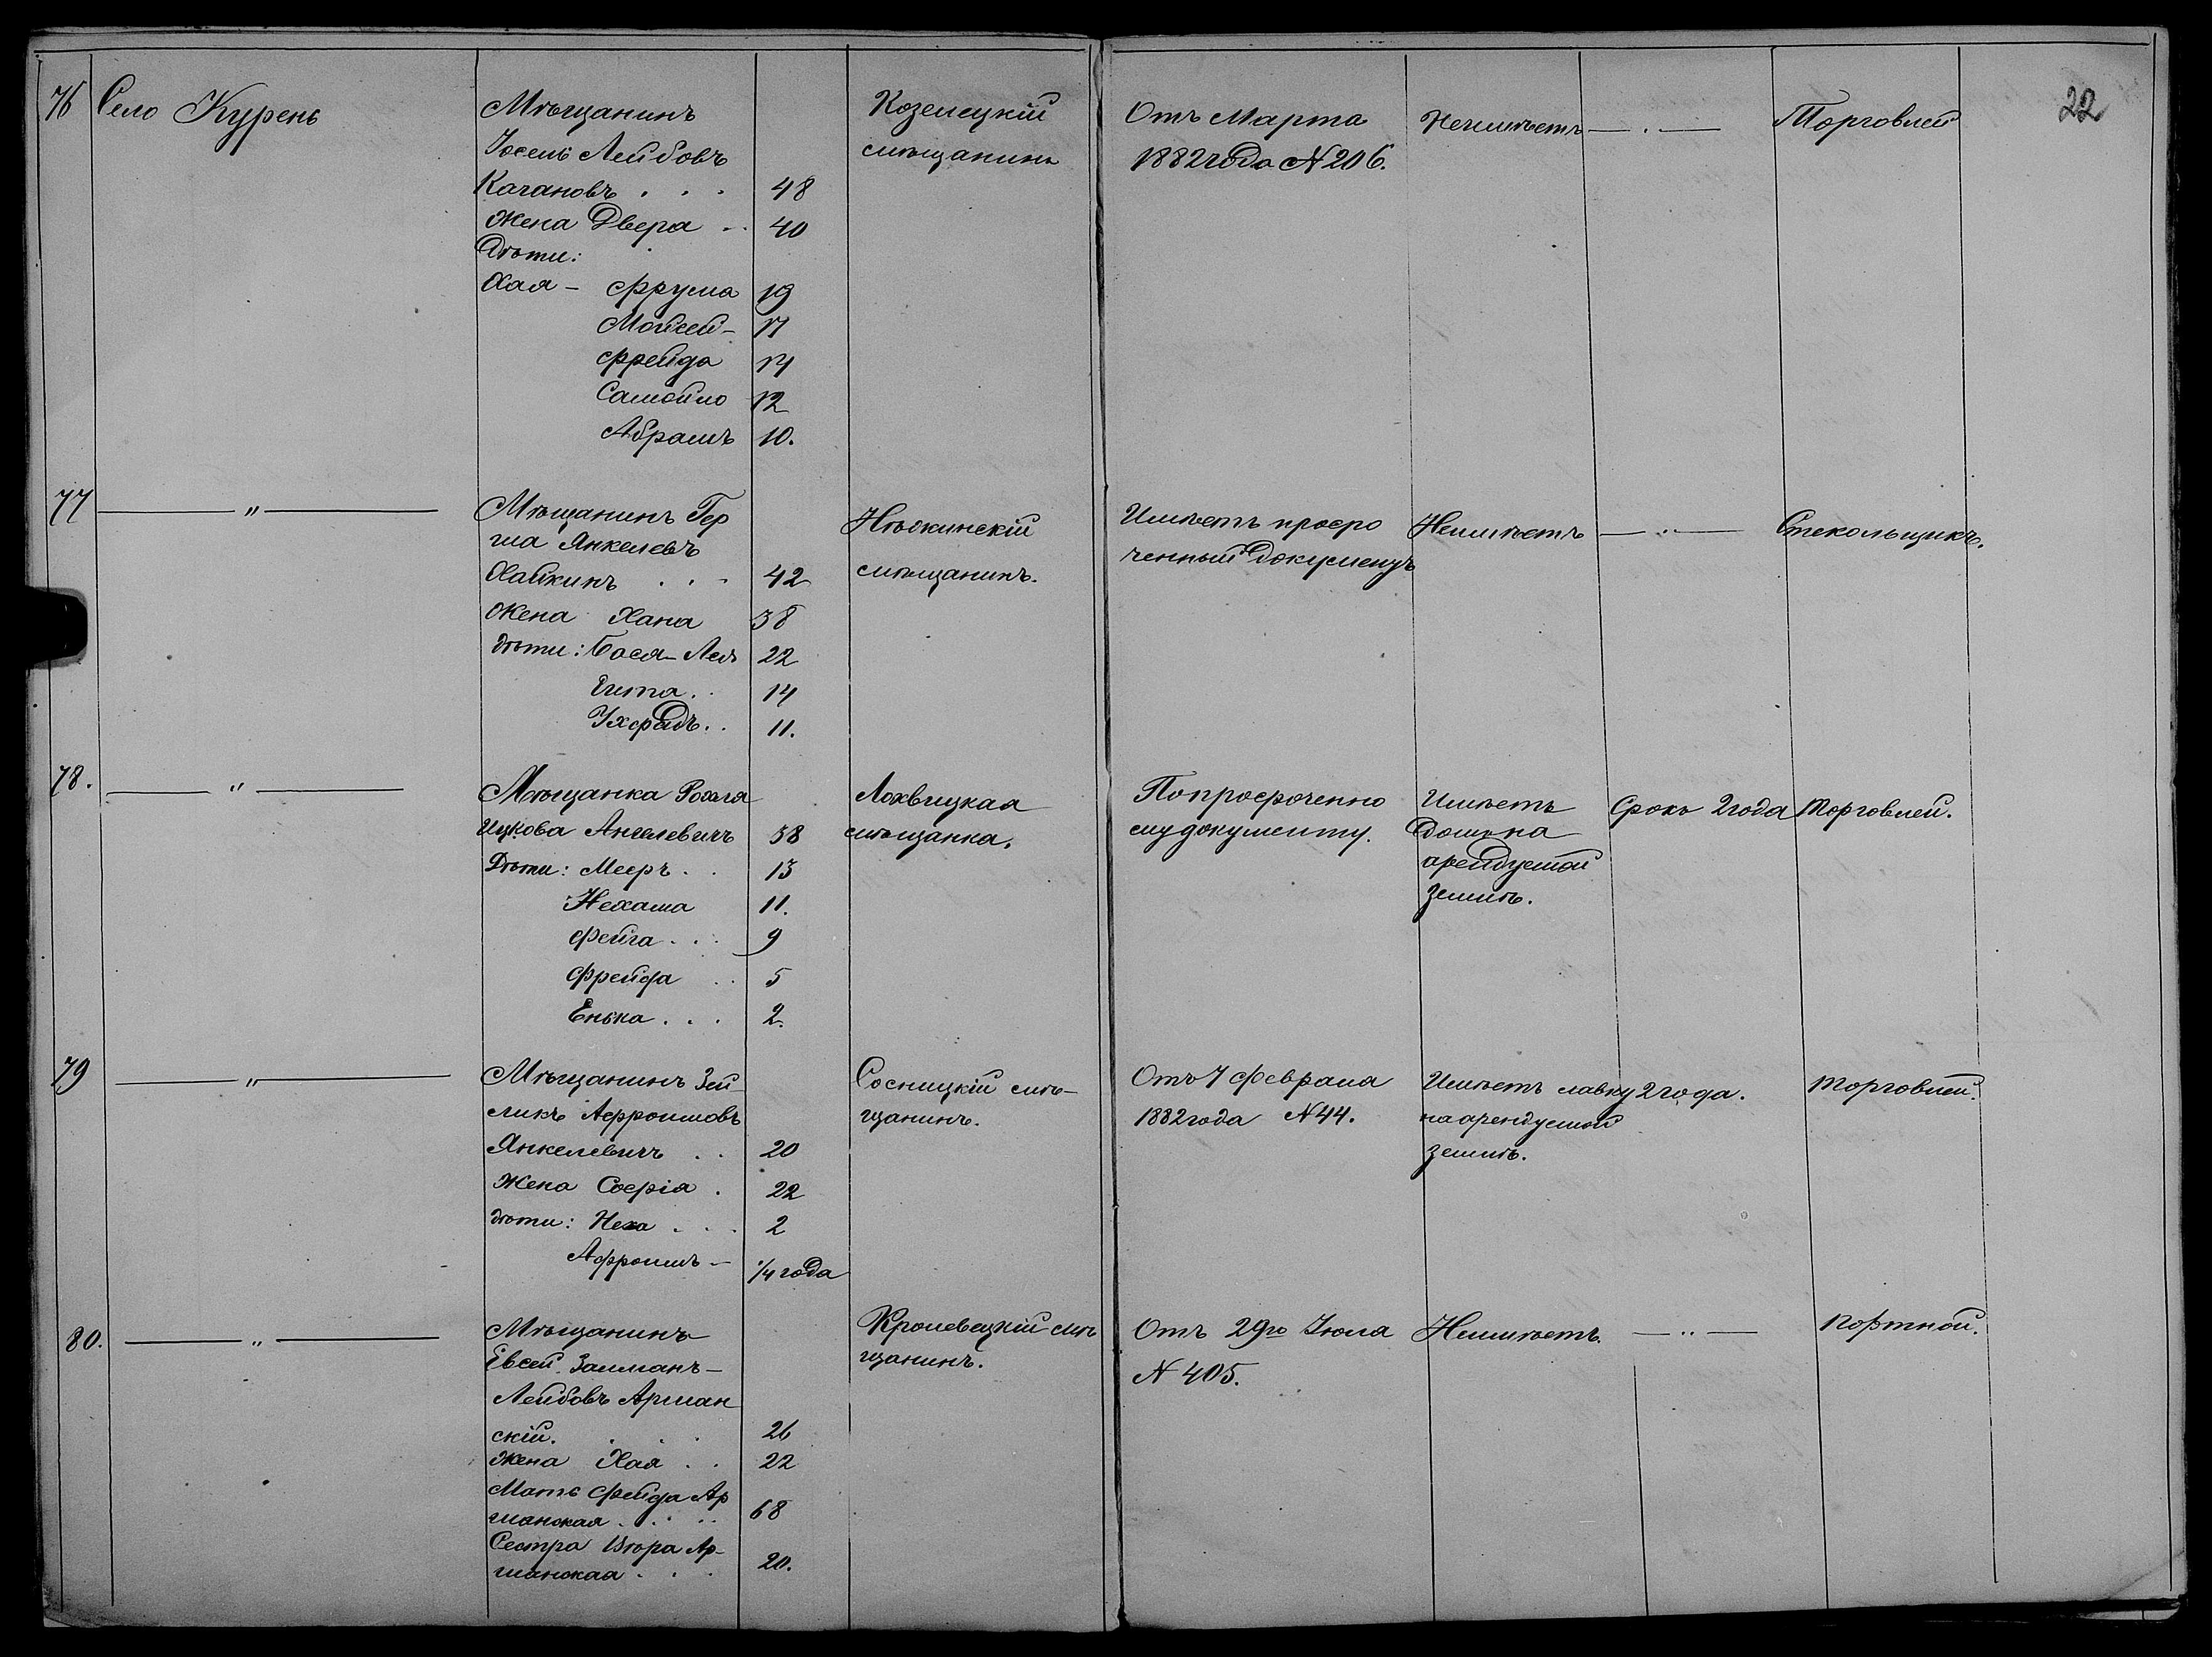 22
76 Село Курень
Мѣщанинъ
Іосель Лейбовъ
Кагановъ . . . 48
Жена Двера .. 40
Дѣти:
Хая - Фрума 19
Мойсей - 17
Фрейда 14
Самойло 12
Абрамъ 10.
Козелецкій
мѣщанинъ
Отъ Марта
1882 года № 206.
Неимѣетъ — . —
Торговлей
77 — " —
Мѣщанинъ Гер
ша Янкелевъ
Хайкинъ . . . 42
Жена Хана 38
дѣти: Бася-Лея 22
Гита . . 14
11.
Нѣжинскій
мѣщанинъ.
Имѣетъ просро
ченный документъ
Неимѣетъ — .. —
Стекольщикъ.
78. — " —
Мѣщанка Рохля
Ицкова 38
Дѣти: Мееръ . . 13
Нехама 11.
Фейга . . . 9
Фрейда . . 5
Енька . . . 2.
Лохвицкая
мѣщанка.
По просроченно
му документу.
Имѣетъ
домъ на
арендуемой
землѣ.
Срокъ 2 года
Торговлей.
79 — " —
Мѣщанинъ Зей-
ликъ Афроимовъ
Янкелевичъ . . 20
Жена Софія . 22
дѣти: Неха . . . 2
Афроимъ - 1/4 года
Сосницкій мѣ-
щанинъ.
Отъ 7 Февраля
1882 года № 44.
Имѣетъ лавку
на арендуемой
землѣ.
2 года.
торговлей.
80. — " —
Мѣщанинъ
Евсей Залманъ-
Лейбовъ Аршан
скій. . . . 26
Жена Хая . . 22
Мать Фейда Ар
шанская . . .. 68
Сестра Ар-
шанская . . . 20.
Кролевецкій мѣ
щанинъ.
Отъ 29го Іюля
№ 405.
Неимѣетъ. — .. —
портной.